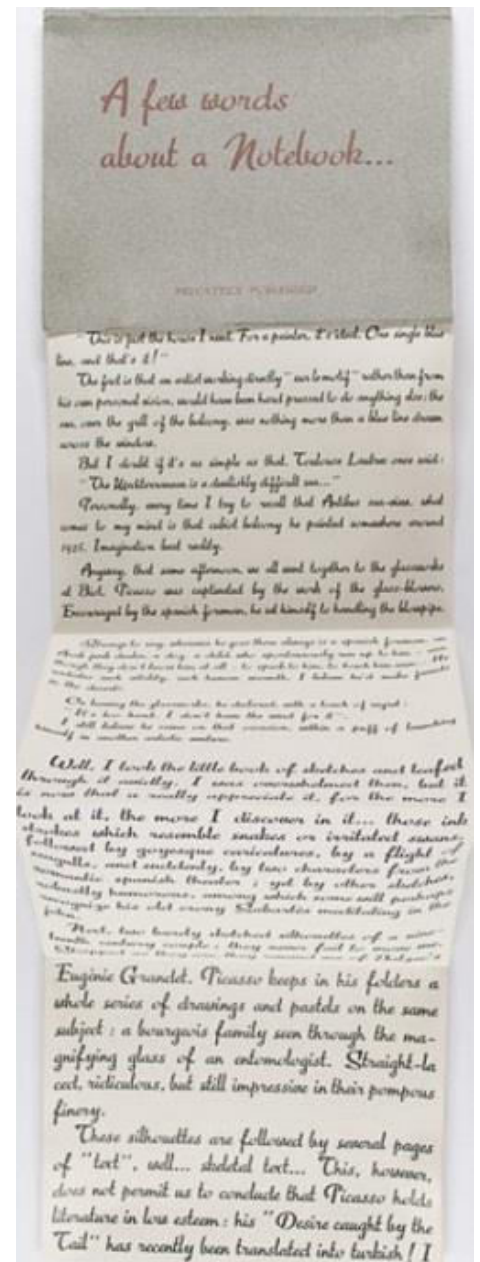 A few words
about a Notebook...
PRIVATELY PUBLISHED
"This is just the house I need. For a painter, it's ideal. One single blue
line, and that's it!"
The fact is that an artist working directly "sur le motif" rather than from
his own personal vision, would have been hard pressed to do anything else: the
sea, over the grill of the balcony, was nothing more than a blue line drawn
across the window.
But I doubt if it's as simple as that. Toulouse Lautrec once said:
"The Mediterranean is a devilishly difficult sea..."
Personally, every time I try to recall that Antibes sea-view, what
comes to my mind is that cubist balcony he painted somewhere around
1925. Imagination beat reality.
Anyway, that same afternoon, we all went together to the glassworks
at Biot. Picasso was captivated by the work of the glass-blowers.
Encouraged by the spanish foreman, he set himself to handling the blowpipe.
Always to my
though they don't know him at all - to speak to him, to touch him
On leaving the glassworks, he declared, with a touch of regret:
I still believe he saw on that occasion, within a puff of
himself in another artistic
Well, I took the little book of sketches and leafed
through it quietly. I was overwhelmed then, but it
is now that I really appreciate it, for the more I
look at it, the more I discover in it... those ink
strokes which resemble snakes or irritated swans,
followed by goyesque caricatures, by a flight of
seagulls, and suddenly, by two characters from the
romantic spanish theater; yet by other sketches,
actually humorous, among which some will perhaps
recognize his old crony Sabartès meditating in the
john.
Next, two barely sketched silhouettes of a nine-
teenth century couple; they never fail to move me.
Strapped as they are, they remind me of Balzac's
Eugénie Grandet. Picasso keeps in his folders a
whole series of drawings and pastels on the same
subject : a bourgeois family seen through the ma-
gnifying glass of an entomologist. Straight-la
ced, ridiculous, but still impressive in their pompous
finery.
These silhouettes are followed by several pages
of "text", well... skeletal text... This, however,
does not permit us to conclude that Picasso holds
literature in low esteem : his "Desire caught by the
Tail" has recently been translated into turkish ! I